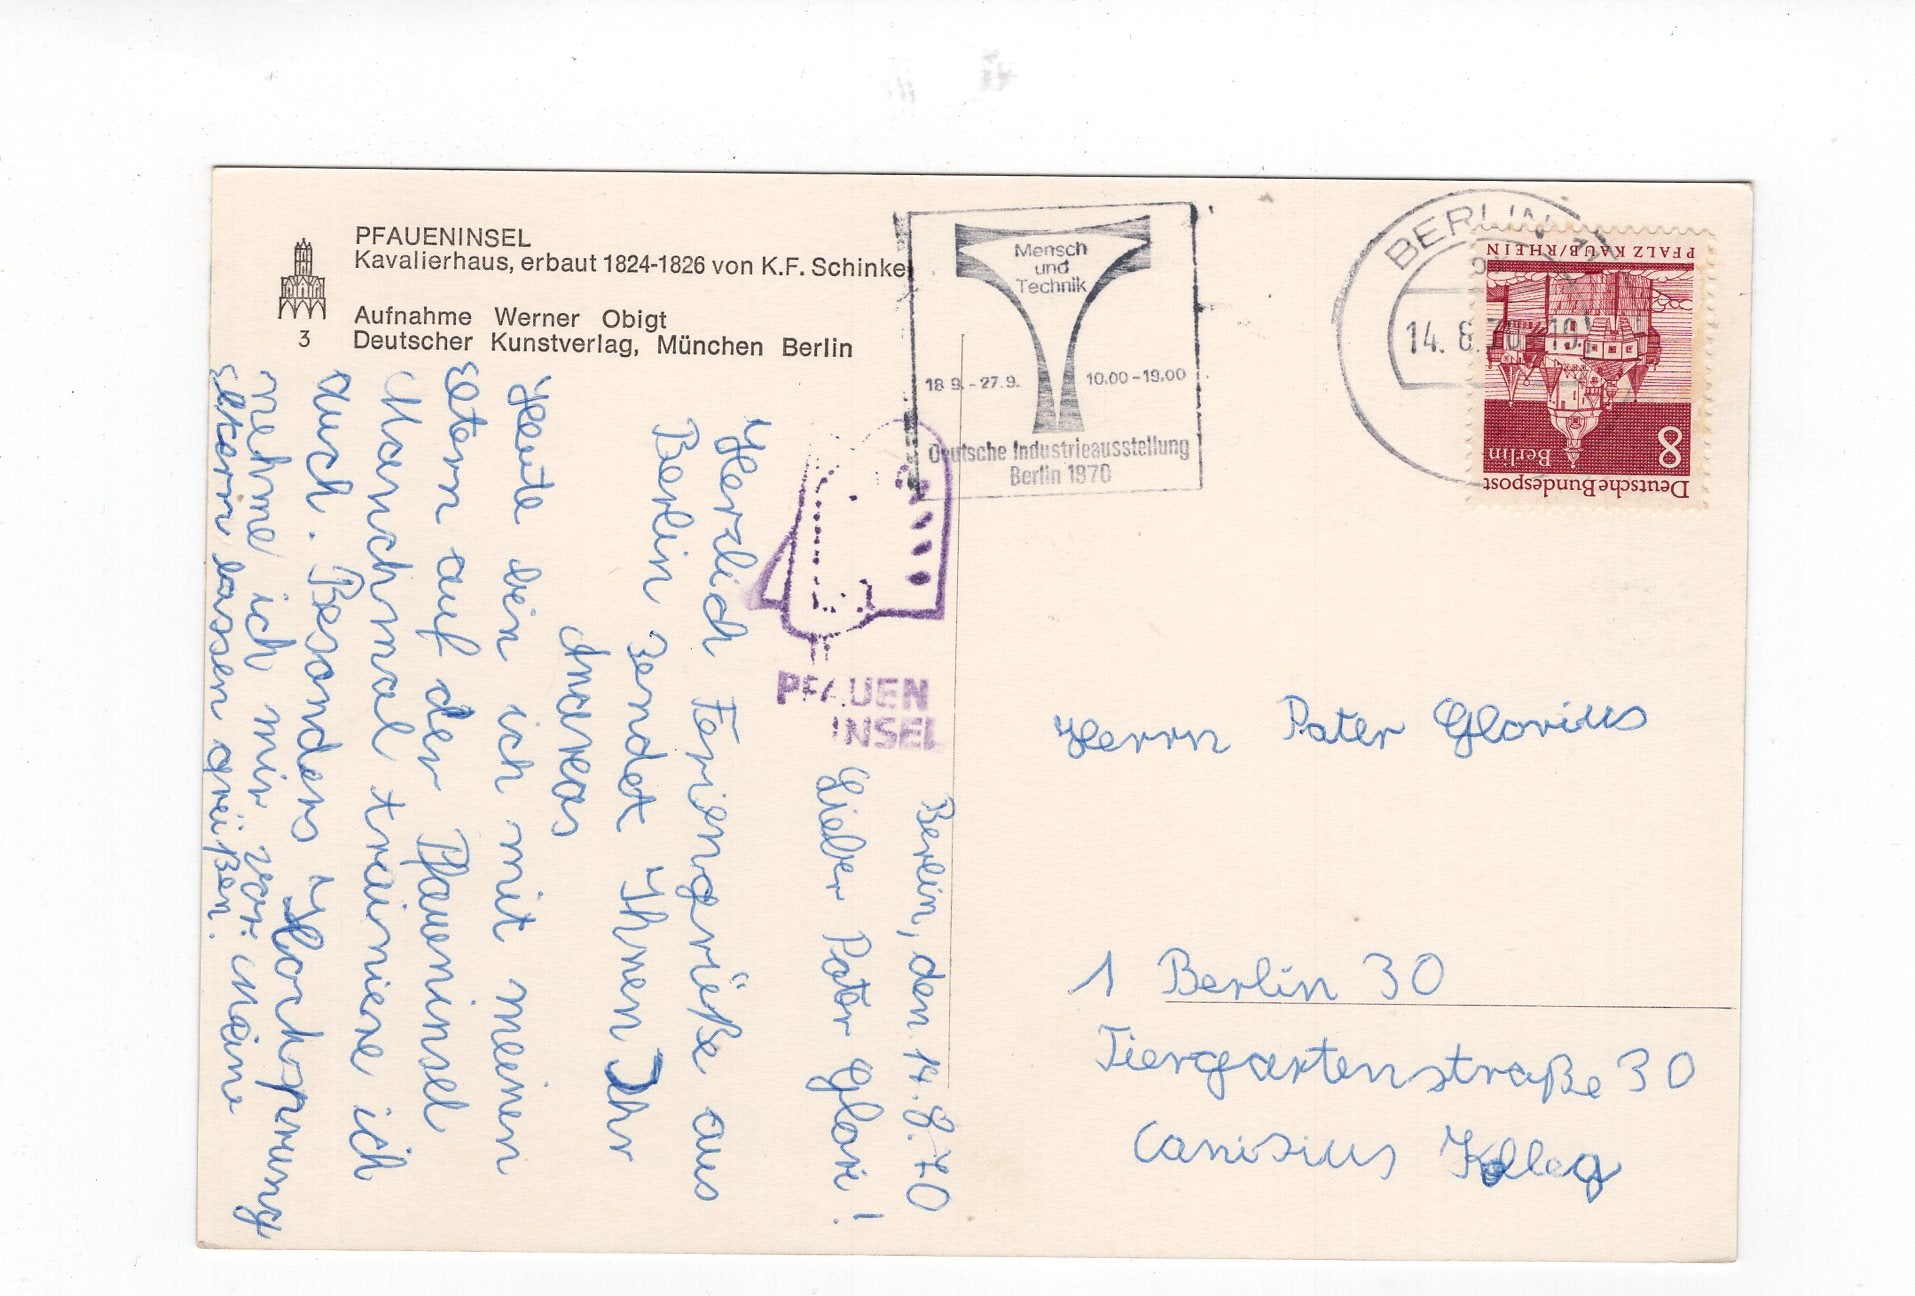 PFAUENINSEL
Kavalierhaus, erbaut 1824-1826 von K.F. Schinkel
Aufnahme Werner Obigt
Deutscher Kunstverlag, München Berlin
3
Mensch
und
Technik
18.9.-27.9. 10.00-19.00
Deutsche Industrieausstellung
Berlin 1970
BERLIN
14. 8. 70 - 19
PFALZ KAUB/RHEIN
8
Berlin
Deutsche Bundespost
PFAUEN
INSEL
Berlin, den 14.8.70
Lieber Pater Glori!
Herzlich Feriengrüße aus
Berlin sendet Ihnen Ihr
Andreas
Heute bin ich mit meinen
eltern auf der Pfaueninsel
Manchmal trainiere ich
auch. Besonders Hochsprung
nehme ich mir vor. Meine
eltern lassen grüßen.
Herrn Pater Glorius
1 Berlin 30
Tiergartenstraße 30
Canisius Kolleg